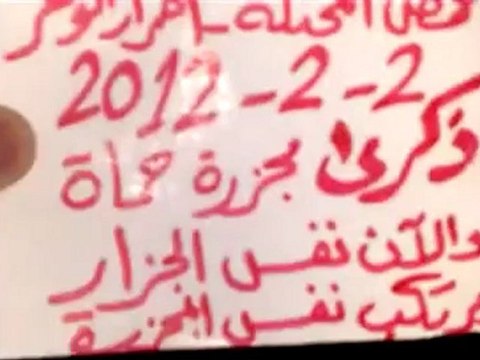 حمص المحتلة - احرار الوعر
2012-2-2
ذكرى مجزرة حماة
والآن نفس الجزار
يرتكب نفس المجزرة